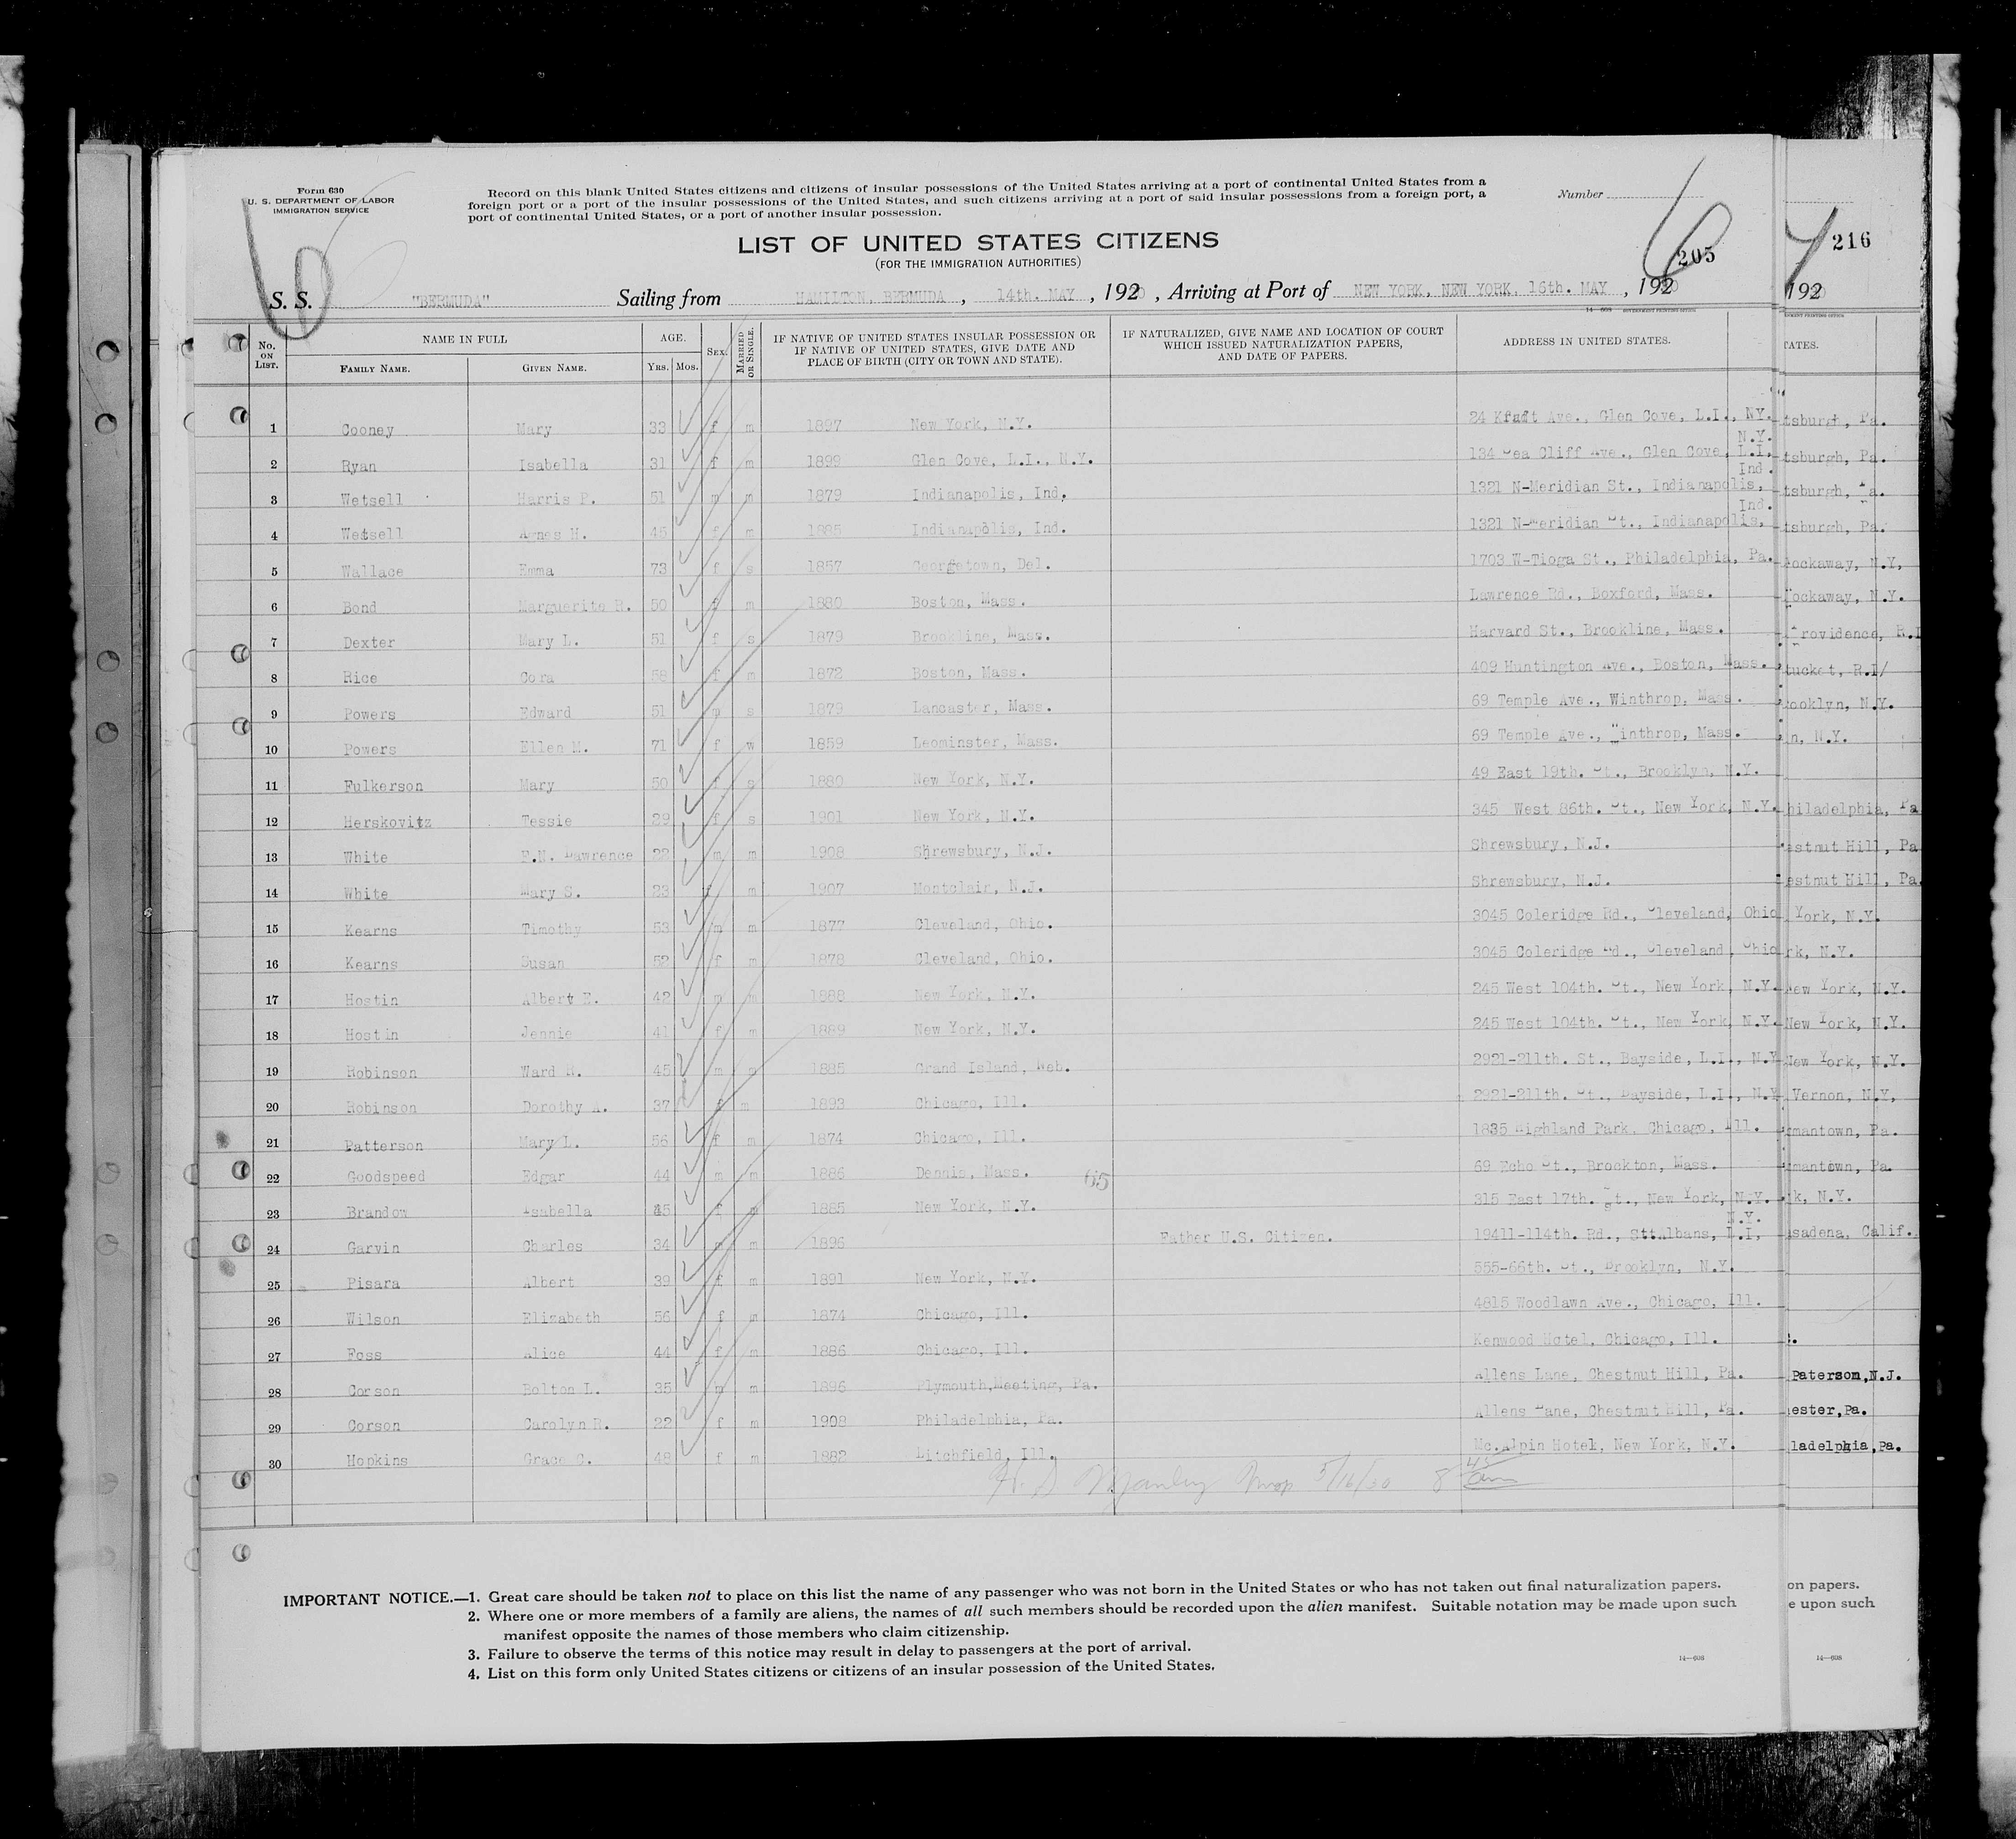 Form 630
U. S. DEPARTMENT OF LABOR
IMMIGRATION SERVICE
Record on this blank United States citizens and citizens of insular possessions of the United States arriving at a port of continental United States from a
foreign port or a port of the insular possessions of the United States, and such citizens arriving at a port of said insular possessions from a foreign port, a
port of continental United States, or a port of another insular possession.
Number
6 6 205
LIST OF UNITED STATES CITIZENS
(FOR THE IMMIGRATION AUTHORITIES)
S. S. "BERMUDA" Sailing from HAMILTON, BERMUDA, 14th. MAY, 1920, Arriving at Port of NEW YORK, NEW YORK, 16th. MAY, 192
14—608 GOVERNMENT PRINTING OFFICE
No. ON LIST. NAME IN FULL FAMILY NAME. GIVEN NAME. AGE. YRS. MOS. SEX. MARRIED OR SINGLE. IF NATIVE OF UNITED STATES INSULAR POSSESSION OR IF NATIVE OF UNITED STATES, GIVE DATE AND PLACE OF BIRTH (CITY OR TOWN AND STATE). IF NATURALIZED, GIVE NAME AND LOCATION OF COURT WHICH ISSUED NATURALIZATION PAPERS, AND DATE OF PAPERS. ADDRESS IN UNITED STATES.
1 Cooney Mary 33 f m 1897 New York, N.Y. 24 Ave., Glen Cove, L.I., NY.
2 Ryan Isabella 31 f m 1899 Glen Cove, L.I., N.Y. 134 Sea Cliff Ave., Glen Cove, L.I, N.Y.
3 Wetsell Harris P. 51 m m 1879 Indianapolis, Ind. 1321 N-Meridian St., Indianapolis, Ind.
4 Wetsell Agnes H. 45 f m 1885 Indianapolis, Ind. 1321 N-Meridian St., Indianapolis, Ind.
5 Wallace Emma 73 f s 1857 Georgetown, Del. 1703 W-Tioga St., Philadelphia, Pa.
6 Bond Marguerite R. 50 f m 1880 Boston, Mass. Lawrence Rd., Boxford, Mass.
7 Dexter Mary L. 51 f s 1879 Brookline, Mass. Harvard St., Brookline, Mass.
8 Rice Cora 58 f m 1872 Boston, Mass. 409 Huntington Ave., Boston, Mass.
9 Powers Edward 51 m s 1879 Lancaster, Mass. 69 Temple Ave., Winthrop, Mass.
10 Powers Ellen M. 71 f w 1859 Leominster, Mass. 69 Temple Ave., Winthrop, Mass.
11 Fulkerson Mary 50 f s 1880 New York, N.Y. 49 East 19th. St., Brooklyn, N.Y.
12 Herskovitz Tessie 29 f s 1901 New York, N.Y. 345 West 86th. St., New York, N.Y.
13 White E.N. Lawrence 22 m m 1908 Shrewsbury, N.J. Shrewsbury, N.J.
14 White Mary S. 23 f m 1907 Montclair, N.J. Shrewsbury, N.J.
15 Kearns Timothy 53 m m 1877 Cleveland, Ohio. 3045 Coleridge Rd., Cleveland, Ohio
16 Kearns Susan 52 f m 1878 Cleveland, Ohio. 3045 Coleridge Rd., Cleveland, Ohio
17 Hostin Albert E. 42 m m 1888 New York, N.Y. 245 West 104th. St., New York, N.Y.
18 Hostin Jennie 41 f m 1889 New York, N.Y. 245 West 104th. St., New York, N.Y.
19 Robinson Ward R. 45 m m 1885 Grand Island, Neb. 2921-211th. St., Bayside, L.I., N.Y
20 Robinson Dorothy A. 37 f m 1893 Chicago, Ill. 2921-211th. St., Bayside, L.I., N.Y
21 Patterson Mary L. 56 f m 1874 Chicago, Ill. 1835 Highland Park, Chicago, Ill.
22 Goodspeed Edgar 44 m m 1886 Dennis, Mass. 65 69 Echo St., Brockton, Mass.
23 Brandow Isabella 45 f m 1885 New York, N.Y. 315 East 17th. St., New York, N.Y.
24 Garvin Charles 34 m m 1896 Father U.S. Citizen. 19411-114th. Rd., St.Albans, L.I, N.Y.
25 Pisara Albert 39 f m 1891 New York, N.Y. 555-66th. St., Brooklyn, N.Y.
26 Wilson Elizabeth 56 f m 1874 Chicago, Ill. 4815 Woodlawn Ave., Chicago, Ill.
27 Foss Alice 44 f m 1886 Chicago, Ill. Kenwood Hotel, Chicago, Ill.
28 Corson Bolton L. 35 m m 1896 Plymouth,Meeting, Pa. Allens Lane, Chestnut Hill, Pa.
29 Corson Carolyn R. 22 f m 1908 Philadelphia, Pa. Allens Lane, Chestnut Hill, Pa.
30 Hopkins Grace C. 48 f m 1882 Litchfield, Ill. Mc.Alpin Hotel, New York, N.Y.
5/16/30 8 45 am
IMPORTANT NOTICE.—1. Great care should be taken not to place on this list the name of any passenger who was not born in the United States or who has not taken out final naturalization papers.
2. Where one or more members of a family are aliens, the names of all such members should be recorded upon the alien manifest. Suitable notation may be made upon such
manifest opposite the names of those members who claim citizenship.
3. Failure to observe the terms of this notice may result in delay to passengers at the port of arrival.
4. List on this form only United States citizens or citizens of an insular possession of the United States.
14—608
7 216
192
TATES.
tsburgh, Pa.
tsburgh, Pa.
tsburgh, Pa.
tsburgh, Pa.
ockaway, N.Y,
ockaway, N.Y.
rovidence, R.I
tucket, R.I/
ooklyn, N.Y.
n, N.Y.
hiladelphia, Pa
estnut Hill, Pa
estnut Hill, Pa.
York, N.Y.
rk, N.Y.
New York, N.Y.
New York, N.Y.
New York, N.Y.
Vernon, N.Y,
mantown, Pa.
mantown, Pa.
k, N.Y.
sadena, Calif.
Paterson,N.J.
ester,Pa.
ladelphia,Pa.
on papers.
e upon such
14—608